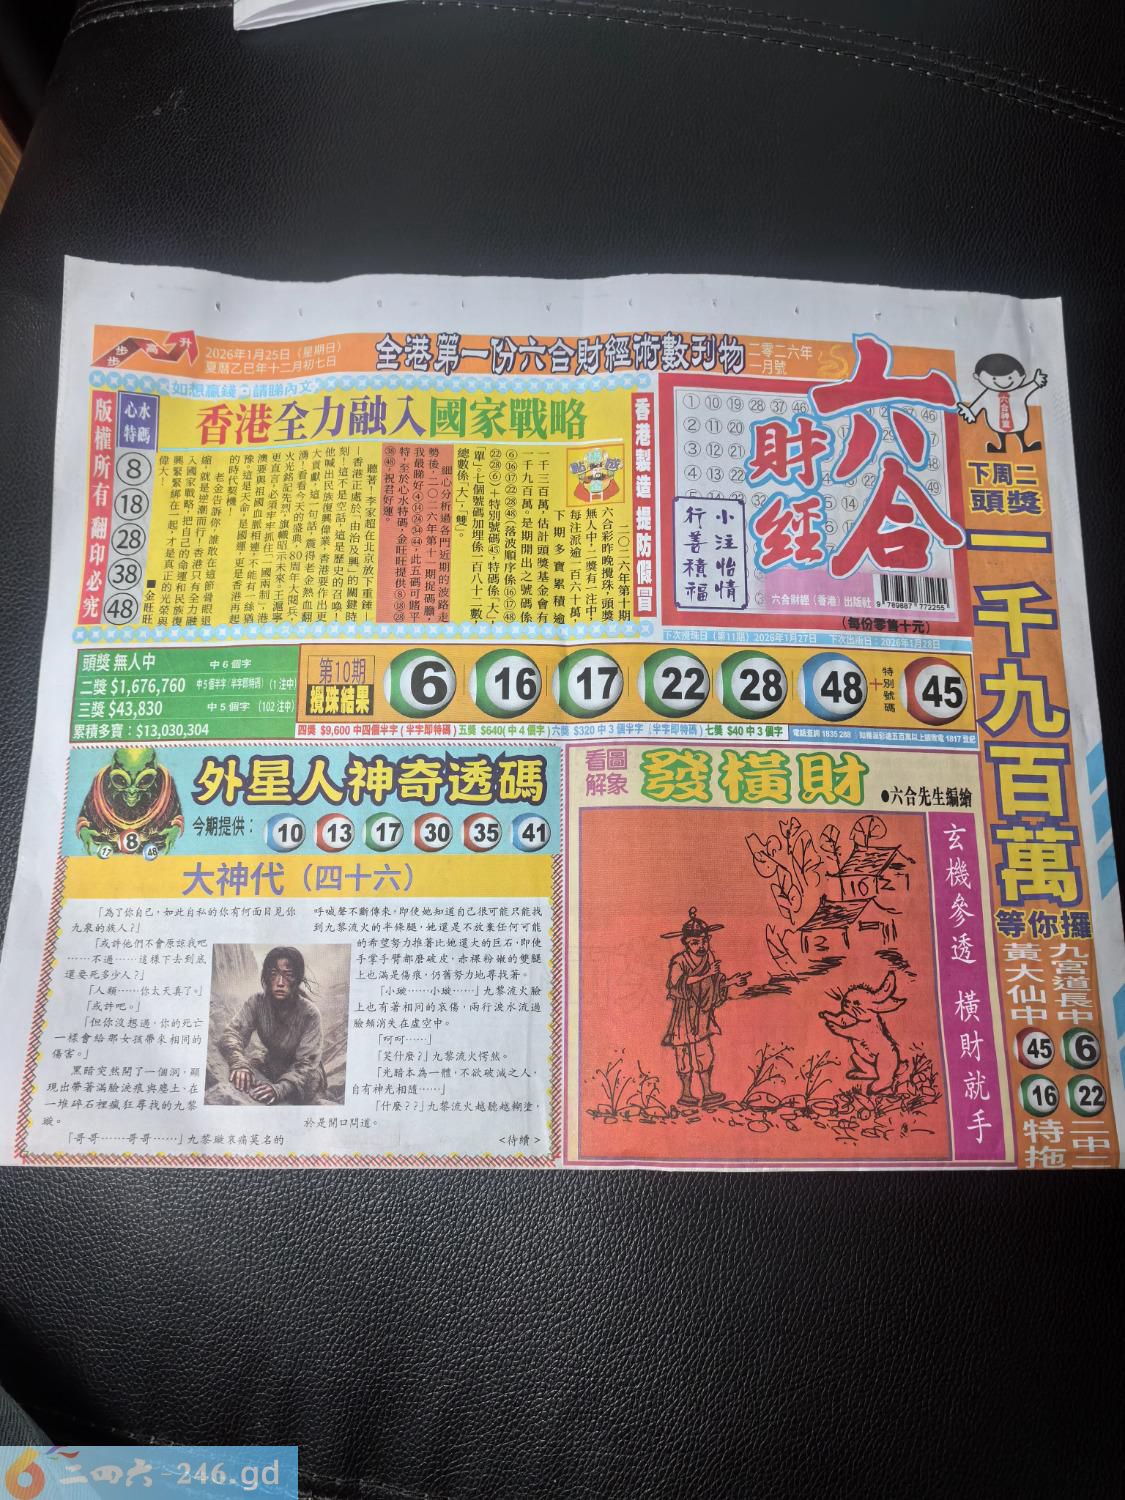 步步高升
2026年1月25日（星期日）
夏曆乙巳年十二月初七日
全港第一份六合財經術數刊物
二零二六年
一月號
六合
財經
小注怡情
行善積福
六合財經（香港）出版社
9 789887 772255
(每份零售十元)
下次攪珠日（第11期）2026年1月27日 下次出版日：2026年1月28日
如想贏錢，請睇內文
版權所有 翻印必究
心水
特碼
8
18
28
38
48
香港全力融入國家戰略
香港製造 提防假冒
二〇二六年第十期
六合彩昨晚攪珠，頭獎
無人中，二獎有一注中，
每注派逾一百六十萬，
下期多寶累積逾
一千三百萬，估計頭獎基金會有
一千九百萬。是期開出之號碼係
⑥⑯⑰㉒㉘㊽(落波順序係⑯⑰㊽
㉒㉘⑥)＋特別號碼㊺，特碼係「大」，
單。七個號碼加埋係一百八十二數，
總數係「大」，「雙」。
細心分析過各門近期的波路走
勢後，二〇二六年第十一期捉碼膽，
我最睇好④⑭㉔㉞㊹，此五碼可睹平
特，至於心水特碼，金旺旺提供⑧⑱㉘
㊳㊽，祝君好運。
聽著！李家超在北京放下重錘—
—香港正處於「由治及興」的關鍵時
刻！這不是空話，這是歷史的召喚！
他喊出民族復興偉業，香港要作出更
大貢獻，這一句話，震得老金熱血翻
湧！看看今天的盛典，80周年大閱兵，
火光銘記先烈，旗幟昭示未來。王滬寧
更直言，必須牢牢抓住「一國兩制」，港
澳要與祖國血脈相連，不能有一絲猶
豫。這是天命，是國運，更是香港再起
的時代契機！
老金告訴你，誰敢在這節骨眼退
縮，就是逆潮而行！香港只有全力融
入國家戰略，把自己的命運和民族復
興緊緊綁在一起，才是真正的光榮與
偉大！
■金旺旺
頭獎 無人中 中6個字
二獎 $1,676,760 中5個半字（半字即特碼）(1 注中)
三獎 $43,830 中5個字 (102 注中)
累積多寶：$13,030,304
第10期
攪珠結果
6 16 17 22 28 48 + 特別號碼 45
四獎 $9,600 中四個半字（半字即特碼）五獎 $640(中4個字) 六獎 $320 中3個半字（半字即特碼）七獎 $40 中3個字
電話查詢 1835 288
下周二
頭獎
一千九百萬
等你攞
九宮道長中
6
22
二中二
黃大仙中
45
16
特拖
外星人神奇透碼
8
17
48
今期提供：
10 13 17 30 35 41
大神代（四十六）
「為了你自己，如此自私的你有何面目見你
九泉的族人？」
「或許他們不會原諒我吧
……不過……這樣下去到底
還要死多少人？」
「人類……你太天真了。」
「或許吧。」
「但你沒想過，你的死亡
一樣會給那女孩帶來相同的
傷害。」
黑暗突然開了一個洞，顯
現出帶著滿臉淚痕與塵土，在
一堆碎石裡瘋狂尋找的九黎
璇。
「哥哥……哥哥……」九黎璇哀痛莫名的
呼喊聲不斷傳來。即使她知道自己很可能只能找
到九黎流火的半條腿，她還是不放棄任何可能
的希望努力推著比她還大的巨石，即使
手掌手臂都磨破皮，赤裸粉嫩的雙腿
上也滿是傷痕，仍舊努力地尋找著。
「小璇……小璇……」九黎流火臉
上也有著相同的哀傷，兩行淚水流過
臉頰消失在虛空中。
「呵呵……」
「笑什麼？」九黎流火愕然。
「光暗本為一體，不欲破滅之人，
自有神光相隨……」
「什麼？？」九黎流火越聽越糊塗，
於是開口問道。
<待續>
看圖
解象
發橫財
●六合先生編繪
玄機參透 橫財就手
二四六-246.gd